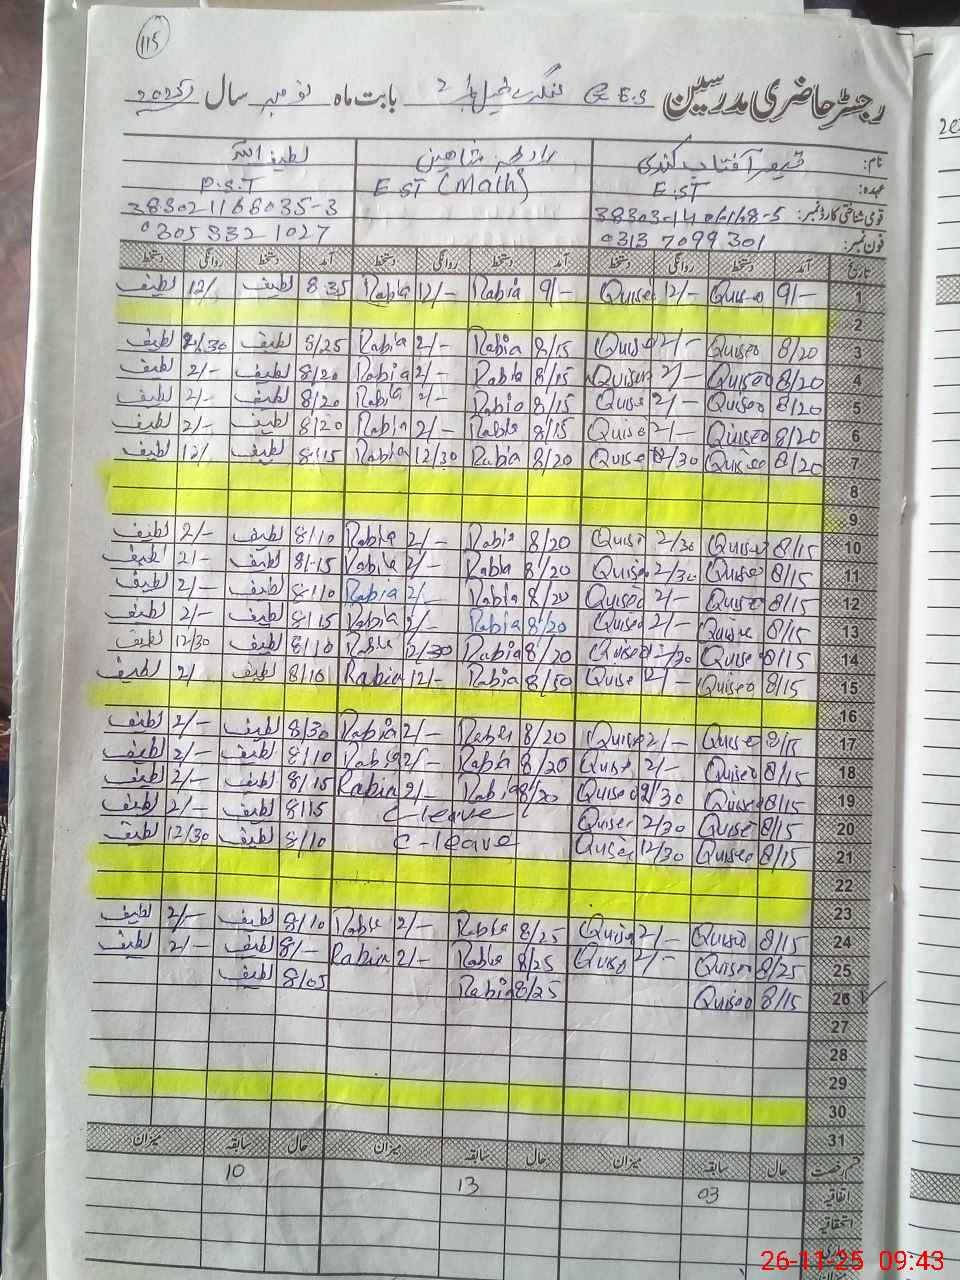 115
رجسٹر حاضری مدرسین G.E.S 2 بابت ماہ نومبر سال 2025
نام: قیصر آفتاب رابعہ شاہین لطیف اللہ
عہدہ: E.ST E.ST (Math) P.S.T
قومی شناختی کارڈ نمبر: 38303-1406168-5 383021168035-3
فون نمبر: 0313 7099 301 0305 832 1027
تاریخ آمد دستخط روانگی دستخط آمد دستخط روانگی دستخط آمد دستخط روانگی دستخط
1 9/- Quiseo 12/- Quiseo 9/- Rabia 12/- Rabia 8:35 لطیف 12/- لطیف
2
3 8/20 Quiseo 2/- Quiseo 8/15 Rabia 2/- Rabia 8/25 لطیف 2/30 لطیف
4 8/20 Quiseo 2/- Quiseo 8/15 Rabia 2/- Rabia 8/20 لطیف 2/- لطیف
5 8/20 Quiseo 2/- Quise 8/15 Rabia 2/- Rabia 8/20 لطیف 2/- لطیف
6 8/20 Quiseo 2/- Quise 8/15 Rabia 2/- Rabia 8/20 لطیف 2/- لطیف
7 8/20 Quiseo 12/30 Quise 8/20 Rabia 12/30 Rabia 8/15 لطیف 12/- لطیف
8
9
10 8/15 Quiseo 2/30 Quise 8/20 Rabia 2/- Rabia 8/10 لطیف 2/- لطیف
11 8/15 Quiseo 2/30 Quiseo 8/20 Rabia 2/- Rabia 8/15 لطیف 2/- لطیف
12 8/15 Quiseo 2/- Quiseo 8/20 Rabia 2/- Rabia 8/10 لطیف 2/- لطیف
13 8/15 Quise 2/- Quiseo 8/20 Rabia 2/- Rabia 8/15 لطیف 2/- لطیف
14 8/15 Quiseo Quiseo 8/20 Rabia 12/30 Rabia 8/10 لطیف 12/30 لطیف
15 8/15 Quiseo 12/- Quise 8/50 Rabia 12/- Rabia 8/10 لطیف 2/ لطیف
16
17 8/15 Quiseo 2/- Quise 8/20 Rabia 2/- Rabia 8/30 لطیف 2/- لطیف
18 8/15 Quiseo 2/- Quise 8/20 Rabia 2/- Rabia 8/10 لطیف 2/- لطیف
19 8/15 Quiseo 2/30 Quiseo 8/20 Rabia 2/- Rabia 8/15 لطیف 2/- لطیف
20 8/15 Quise 2/30 Quiseo C leave 8/15 لطیف 2/- لطیف
21 8/15 Quiseo 12/30 Quiseo C-leave 8/10 لطیف 12/30 لطیف
22
23
24 8/15 Quiseo 2/- Quise 8/25 Rabia 2/- Rabia 8/10 لطیف 2/- لطیف
25 8/25 Quiseo 2/- Quise 8/25 Rabia 2/- Rabia 8/- لطیف 2/- لطیف
26 8/15 Quiseo 8/25 Rabia 8/05 لطیف
27
28
29
30
31
قسم رخصت حال سابقہ میزان حال سابقہ میزان حال سابقہ میزان
اتفاقیہ 03 13 10
استحقاقیہ
26-11-25 09:43